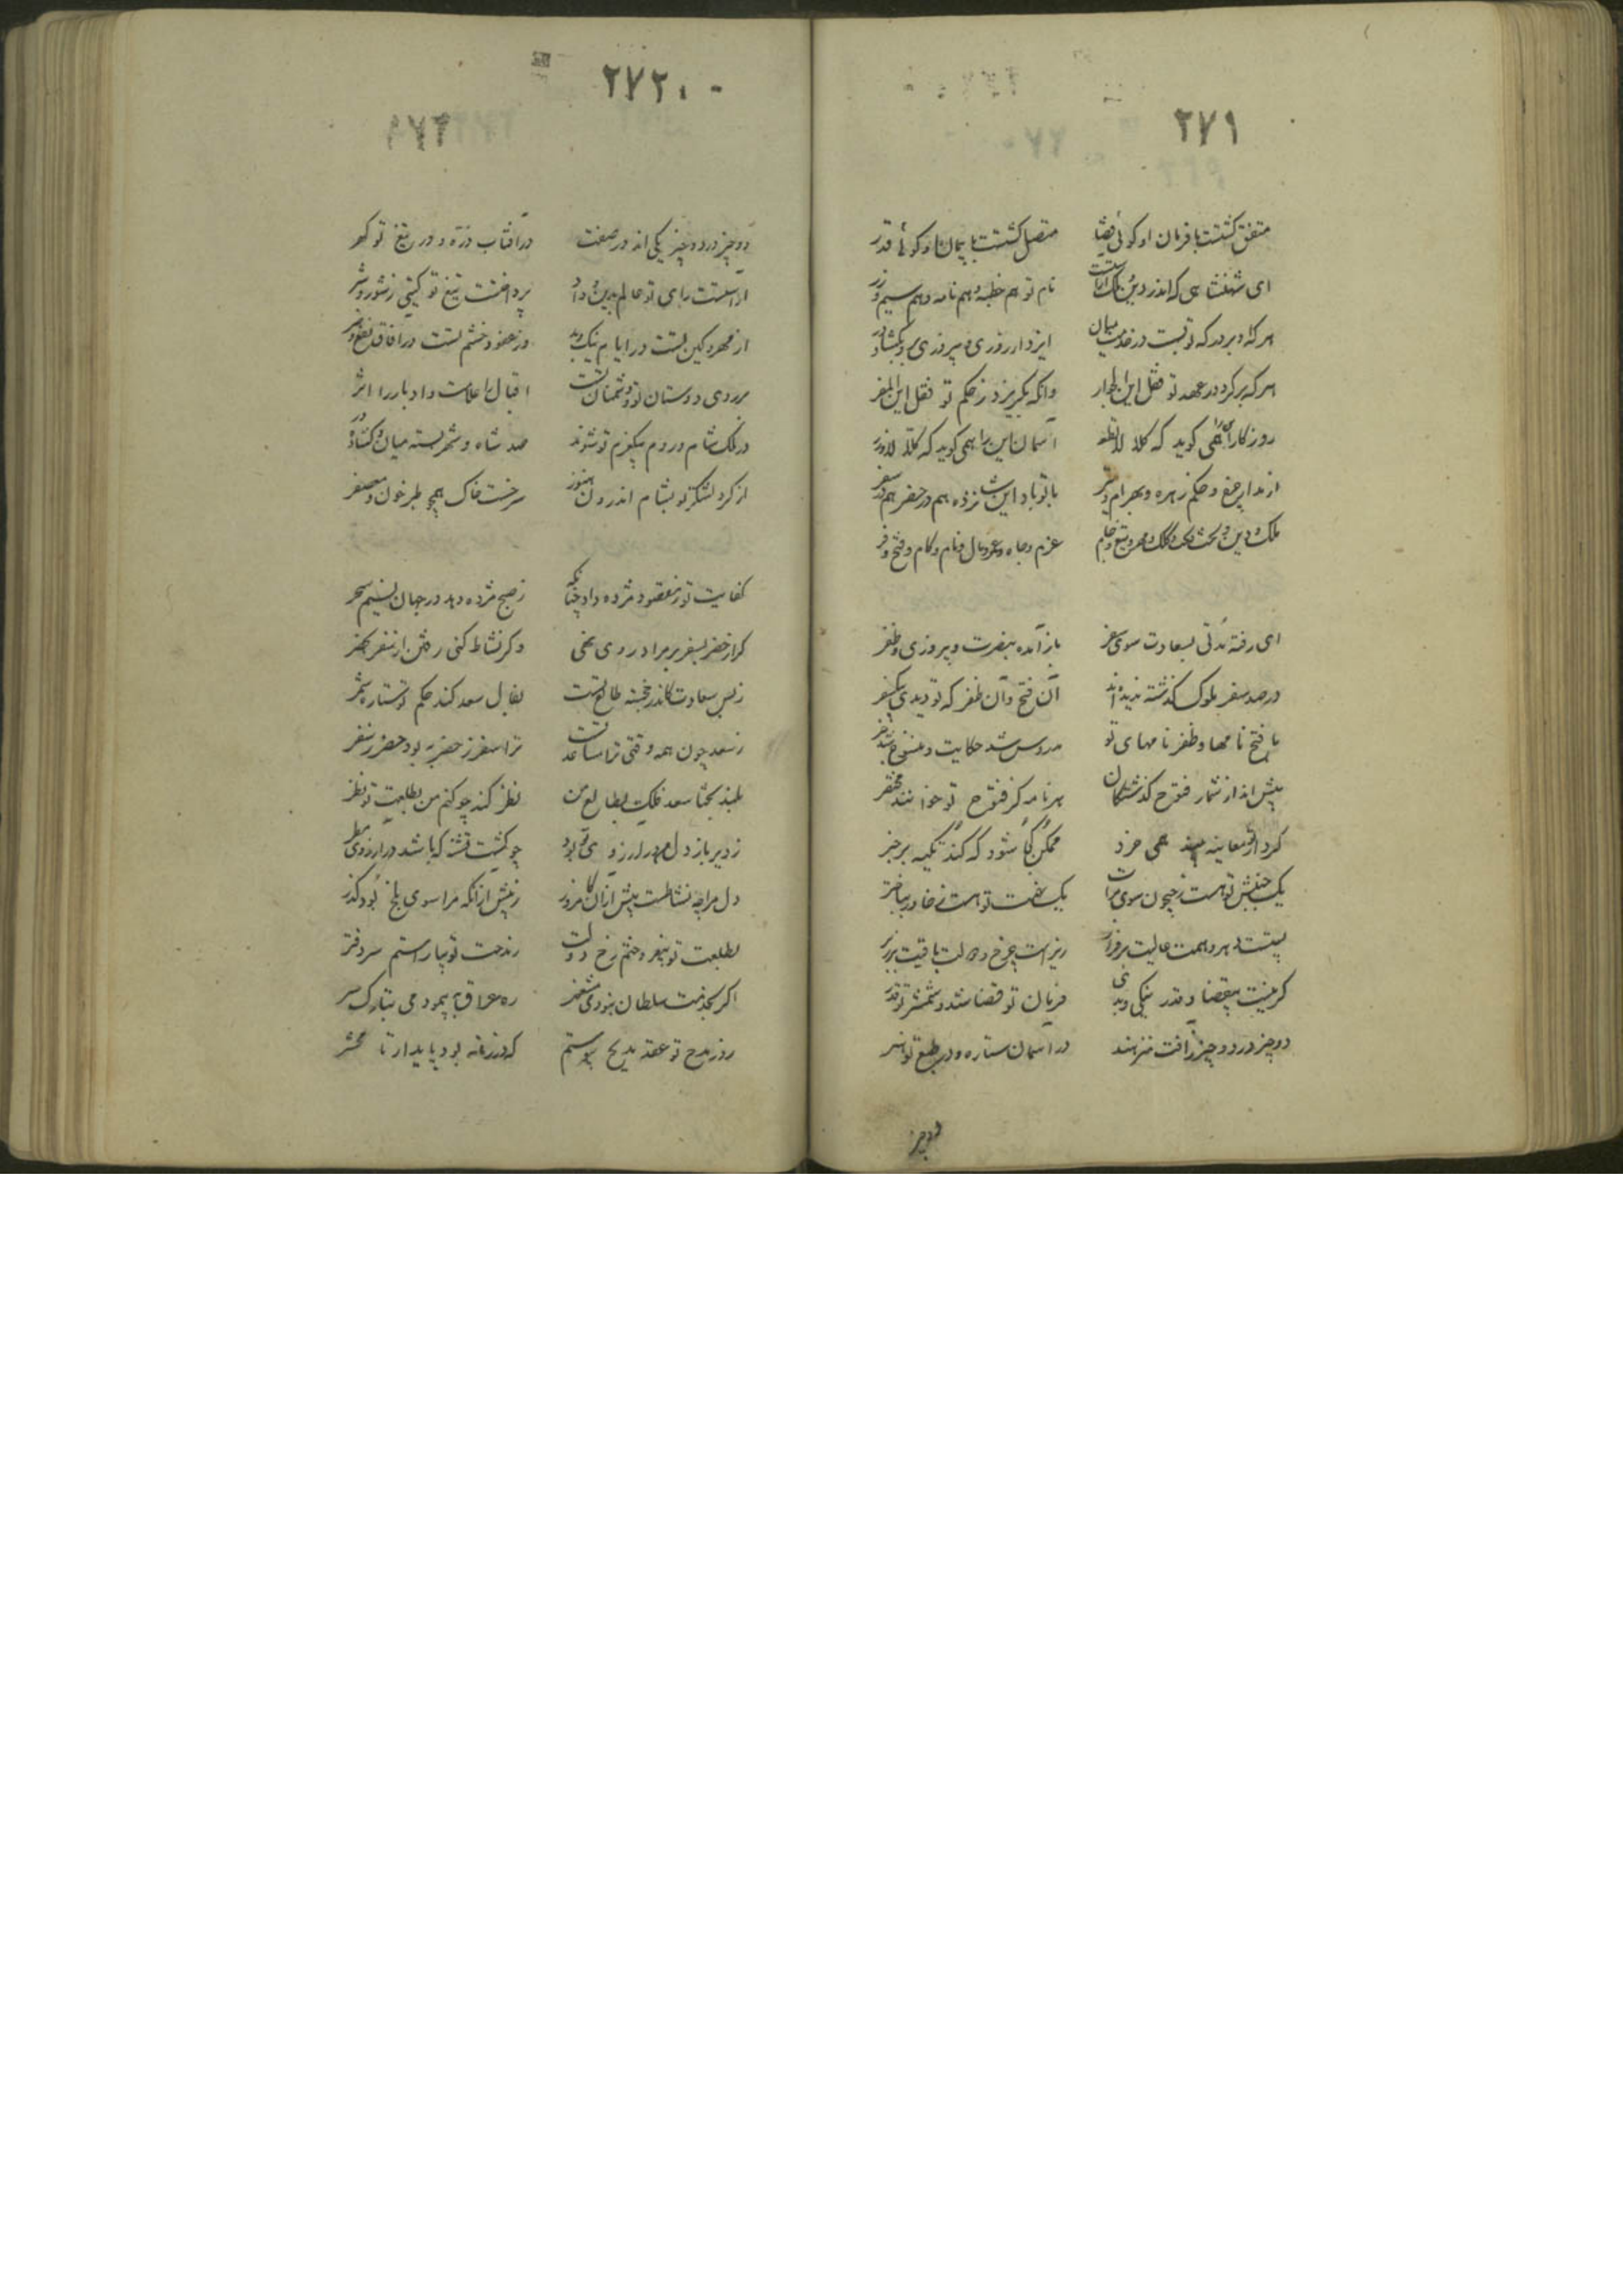 ۲۷۱
متفق گشتست با فرمان او گوئی قضا متصل گشتست با پیمان او گوئی قدر
ای شهنشاهی که اندر دین و ملک آراستست نام تو هم خطبه و هم نامه و هم سیم و زر
هر که او بر درگه تو بست در خدمت میان ایزد از روزی و پیروزی برو بگشاد در
هر که برگردد در عهد تو فقل این الفرار وانکه بگریزد ز حکم تو فقل این المفر
روزکار آن را همی کوید که کلا لا تطع آسمان این را همی کوید که کلا لا وزر
از مدار چرخ و حکم زهره و بهرام و تیر با تو باد این شانزده هم در حضر هم در سفر
ملک و دین و بخت و تخت و کلک و مهر و تیغ و جام عزم و جاه و عز و مال و نام و کام و فتح و فر
ای رفته مدتی بسعادت سوی سفر باز آمده بنصرت و پیروزی و ظفر
در صد سفر ملوک گذشته ندیده‌اند آن فتح و آن ظفر که تو دیدی بیک سفر
با فتح نامها و ظفر نامهای تو مدروس شد حکایت و منسوخ شد
بیش اند از شمار فتوح گذشتگان هر نامه کز فتوح تو خوانند مختصر
کردار تو معاینه بیند همی خرد ممکن کجا شود که کند تکیه بر خبر
یک جنبش تو هست ز جیحون سوی فرات یک نهضت تو هست ز خاور بباختر
پستست ابر و همت عالیت بر فراز زیرست چرخ و دولت باقیت بر زبر
گر نیست بی قضا و قدر نیکی و بدی فرمان تو قضا شد و شمشیر تو قدر
دو چیز در دو چیز ز آفت منزهند در آسمان ستاره و در طبع تو هنر
دو چیز
۲۷۲
دو چیز در دو چیز یکی اند در صفت در آفتاب ذره و در تیغ تو گهر
آراستست رای تو عالم بدین و داد پرداختست تیغ تو گیتی ز شور و شر
از مهر و کین تست در ایام نیک و بد وز عفو و خشم تست در آفاق نفع و ضر
بر روی دوستان تو و دشمنان تست اقبال را علامت و ادبار را اثر
در ملک شام و روم بیک عزم تو شوند صد شاه و شهر بسته میان و گشاده در
از گرد لشکر تو بشام اندرون هنوز سرخست خاک همچو طبرخون و معصفر
کفایت تو ز مقصود مژده داد چنانکه ز صبح مژده دهد در جهان نسیم سحر
گر از حضر بسفر بر مراد روی نهی وگر نشاط کنی رفتن از سفر بحضر
ز بس سعادت کاندر خجسته طالع تست بفال سعد کند حکم تو ستاره شمر
ز سعد چون همه وقتی ترا مساعدتست ترا سفر ز حضر به بود حضر ز سفر
بلند بختا سعد فلک بطالع من نظر کند چو کنم من بطلعت تو نظر
ز دیر باز دل من در آرزوی تو بود چو کشت تشنه که باشد در آرزوی مطر
دل مرا چه نشاطست بیش از آن کامروز ز پیش از آنکه مرا سوی بلخ بود گذر
بطلعت تو بیفروختم رخ دولت ز مدحت تو بیاراستم سر دفتر
اگر بخدمت سلطان نبودمی مشغول ره عراق بپیمودمی بتارک سر
ز در مدح تو عقد مدیح پیوستم که در زمانه بود پایدار تا محشر